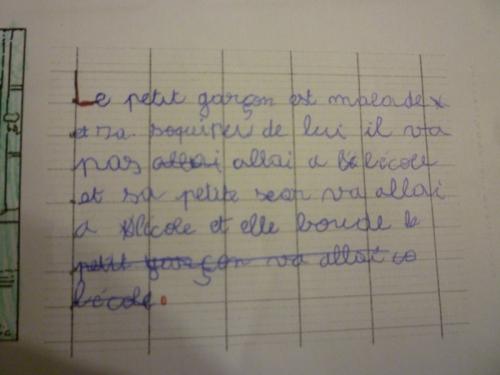 Le petit garçon est malade
et sa soquiper de lui il va
pas allai allai a l'école
et sa petite seor va allai
a l'école et elle boude le
petit garçon va allai a
l'école.